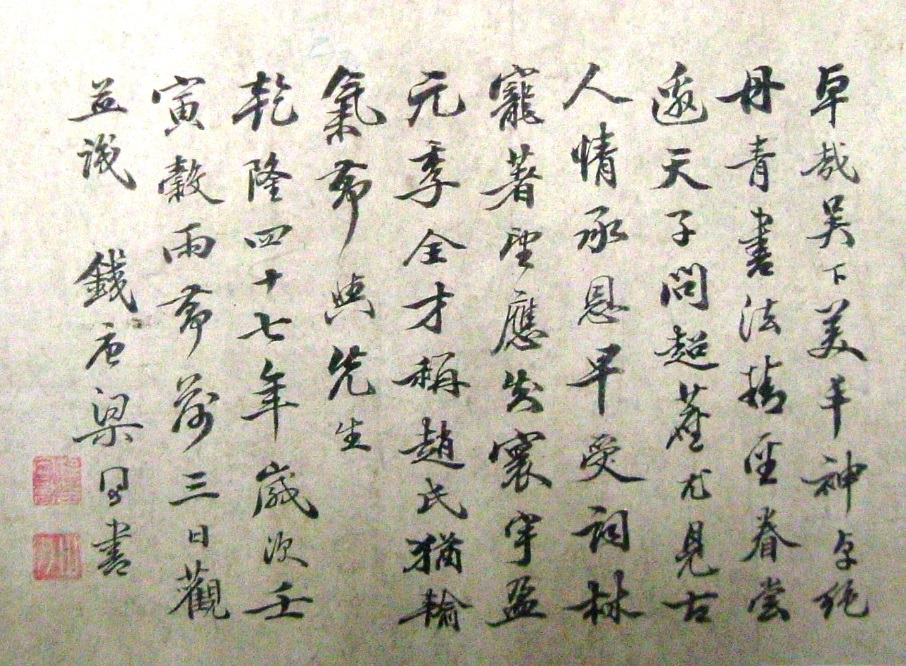 卓哉吳下美丰神卓絕
丹青書法精聖眷嘗
邀天子問超塵尤見古
人情承恩早受詞林
寵著望應共寰宇盈
元季全才稱趙氏猶輸
氣節與先生
乾隆四十七年歲次壬
寅穀雨節前三日觀
並識 錢唐梁同書